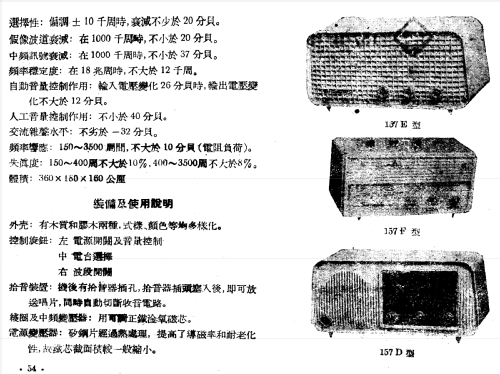 選擇性: 偏調 ± 10 千周時，衰減不少於 20 分貝。
假像波道衰減: 在 1000 千周時，不小於 20 分貝。
中頻訊號衰減: 在 1000 千周時，不小於 37 分貝。
頻率穩定度: 在 18 兆周時，不大於 12 千周。
自動音量控制作用: 輸入電壓變化 26 分貝時，輸出電壓變
化不大於 12 分貝。
人工音量控制作用: 不小於 40 分貝。
交流雜聲水平: 不劣於 −32 分貝。
頻率響應: 150～3500 周間，不大於 10 分貝 (電阻負荷)。
失眞度: 150～400周不大於10%，400～3500周不大於8%。
體積: 360×160×160 公厘
裝備及使用說明
外壳: 有木質和膠木兩種，式樣、顏色等均多樣化。
控制旋鈕: 左 電源開關及音量控制
中 電台選擇
右 波段開關
拾音裝置: 機後有拾音器插孔，拾音器插頭塞入後，即可放
送唱片，同時自動切斷收音電路。
綫圈及中頻變壓器: 用可調正鐵淦氧磁芯。
電源變壓器: 矽鋼片經過熱處理，提高了導磁率和耐老化
性，故磁芯截面積較一般縮小。
· 54 ·
157 E 型
157 F 型
157 D 型